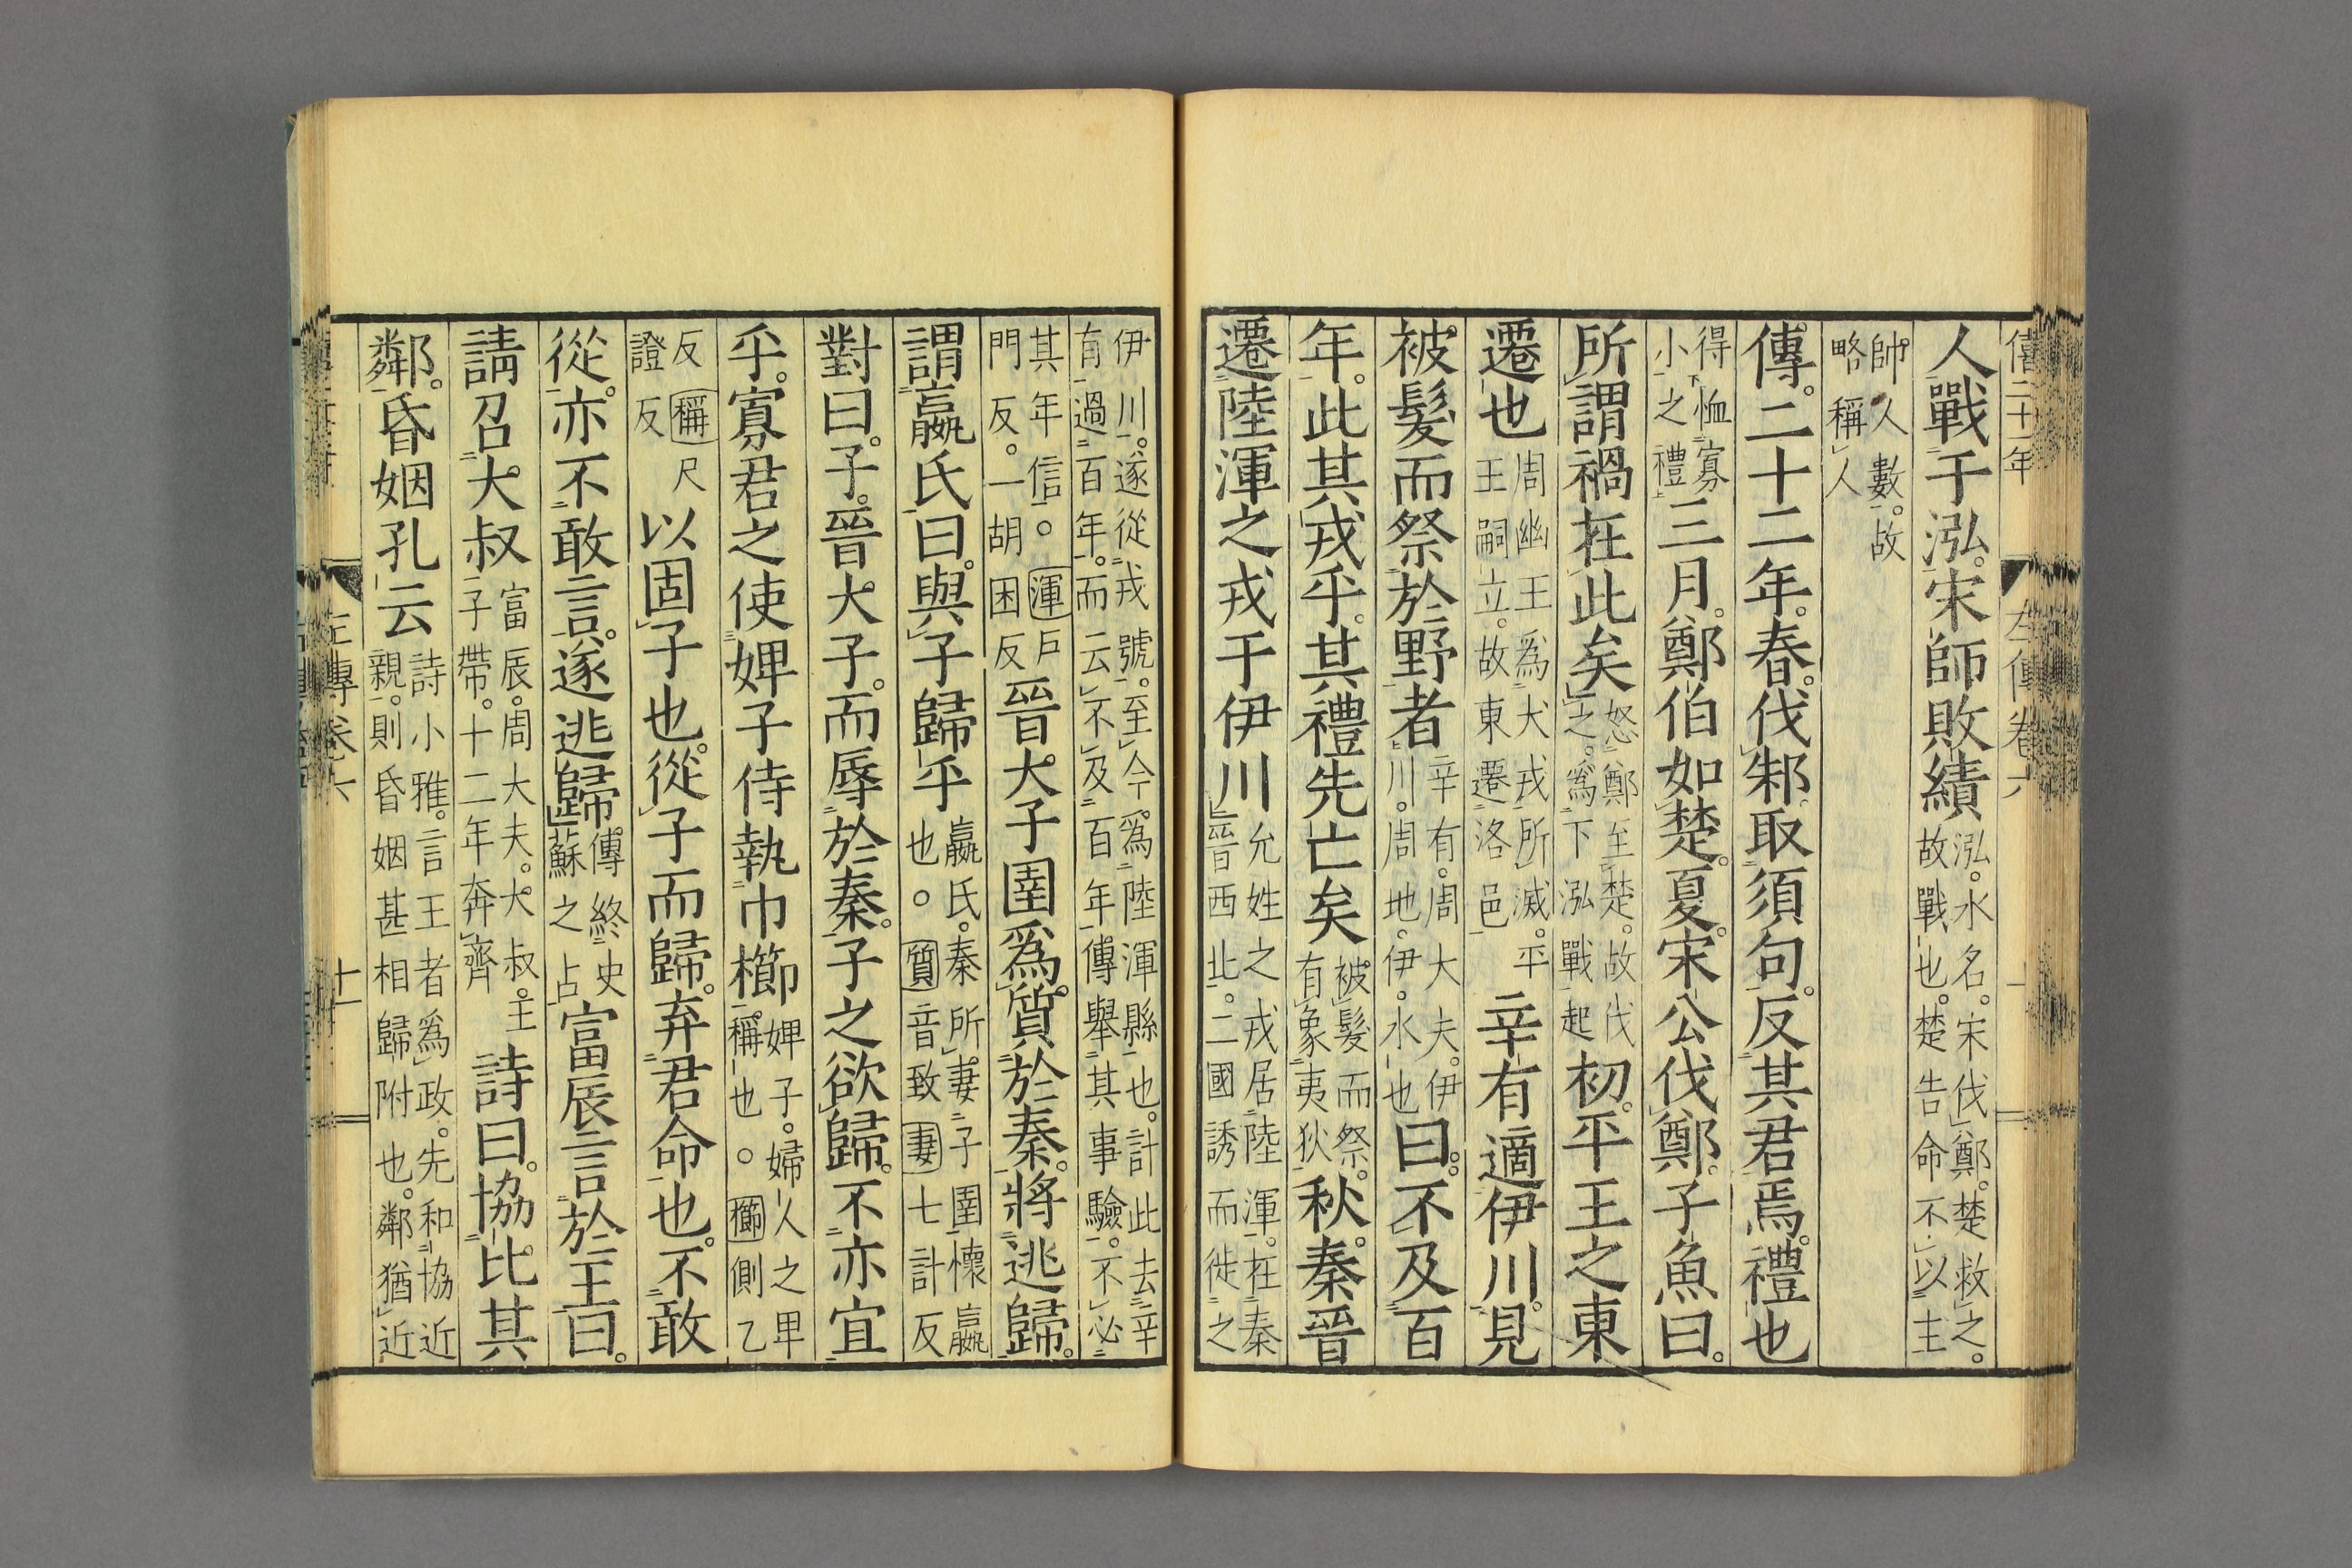 僖二十一年
左傳卷六
人戰于泓宋師敗績泓水名宋伐鄭楚救之故戰也楚告命不以主
帥人數故略稱人
傳二十二年春伐邾取須句反其君焉禮也
得恤寡小之禮三月鄭伯如楚夏宋公伐鄭子魚曰
所謂禍在此矣怒鄭至楚故伐之爲下泓戰起初平王之東
遷也周幽王爲犬戎所滅平王嗣立故東遷洛邑辛有適伊川見
被髮而祭於野者辛有周大夫伊川周地伊水也曰不及百
年此其戎乎其禮先亡矣被髮而祭有象夷狄秋秦晉
遷陸渾之戎于伊川允姓之戎居陸渾在秦晉西北二國誘而徙之
伊川遂從戎號至今爲陸渾縣也計此去辛有過百年而云不及百年傳舉其事驗不必
其年信○渾戶門反一胡困反晉大子圉爲質於秦將逃歸
謂嬴氏曰與子歸乎嬴氏秦所妻子圉懷嬴也○質音致妻七計反
對曰子晉大子而辱於秦子之欲歸不亦宜
乎寡君之使婢子侍執巾櫛婢子婦人之卑稱也○櫛側乙
反稱尺證反以固子也從子而歸弃君命也不敢
從亦不敢言遂逃歸傳終史蘇之占富辰言於王曰
請召大叔富辰周大夫大叔王子帶十二年奔齊詩曰協比其
鄰昏姻孔云詩小雅言王者爲政先和協近親則昏姻甚相歸附也鄰猶近
左傳卷六
十一